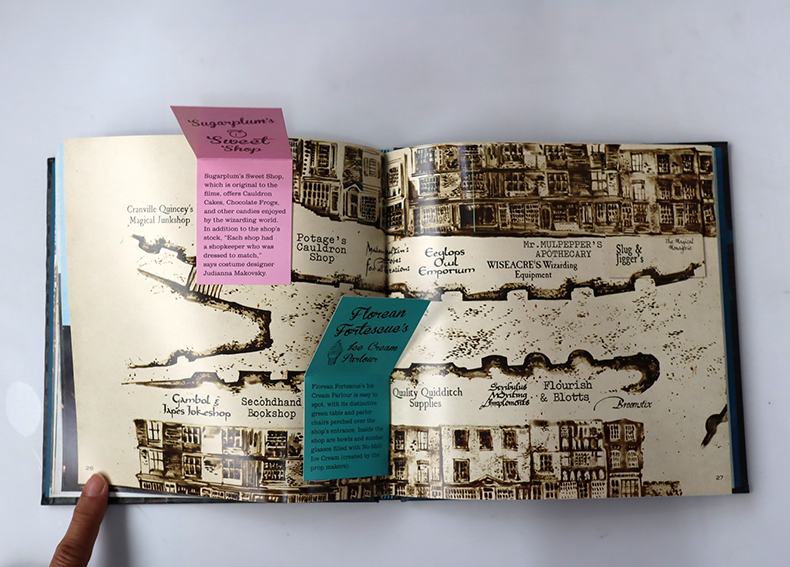 Sugarplum's
Sweet
Shop
Sugarplum's Sweet Shop,
which is original to the
films, offers Cauldron
Cakes, Chocolate Frogs,
and other candies enjoyed
by the wizarding world.
In addition to the shop's
stock, "Each shop had
a shopkeeper who was
dressed to match,"
says costume designer
Judianna Makovsky.
Cranville Quincey's
Magical Junkshop
Potage's
Cauldron
Shop
Eeylops
Owl
Emporium
Mr. MULPEPPER'S
APOTHECARY
WISEACRE'S Wizarding
Equipment
Slug &
Jigger's
The Magical
Menagerie
Florean
Fortescue's
Ice Cream
Parlour
Florean Fortescue's Ice
Cream Parlour is easy to
spot, with its distinctive
green table and parlor
chairs perched over the
shop's entrance. Inside the
shop are bowls and sundae
glasses filled with No-Melt
Ice Cream (created by the
prop makers).
Gambol &
Japes Jokeshop
Secondhand
Bookshop
Quality Quidditch
Supplies
Scribulus
Writing
Implements
Flourish
& Blotts
Broomstix
26
27